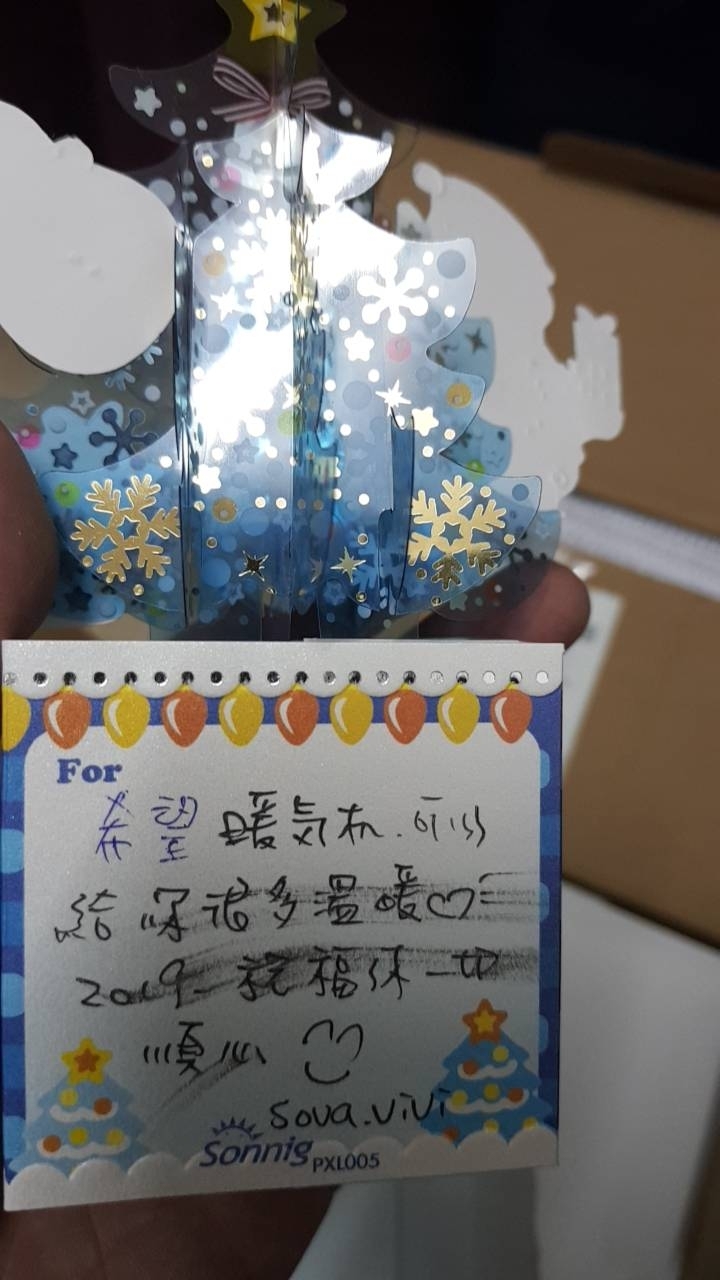 For
希望 暖気机.可以
給深诺多溫暖♡
2019 祝福你一切
順心
sova.vivi
Sonnig PXL005